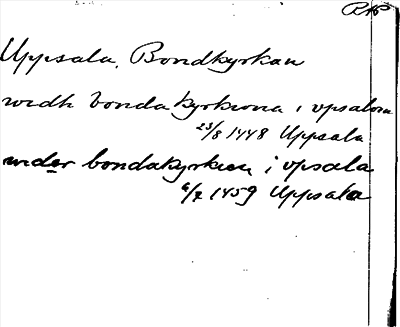 RAP
Uppsala, Bondkyrkan
widh bonda kyrkiona i vpsalom
23/8 1448 Uppsala
vnder bondakyrkien i vpsala
6/7 1459 Uppsala